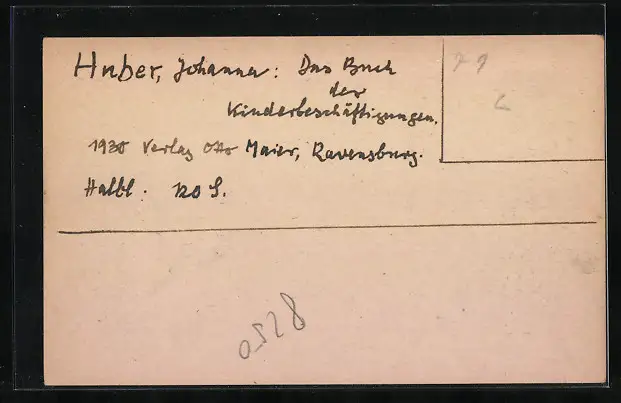 Huber, Johanna: Das Buch
der
Kinderbeschäftigungen.
1930 Verlag Otto Maier, Ravensburg.
Halbl. 120 S.
0528